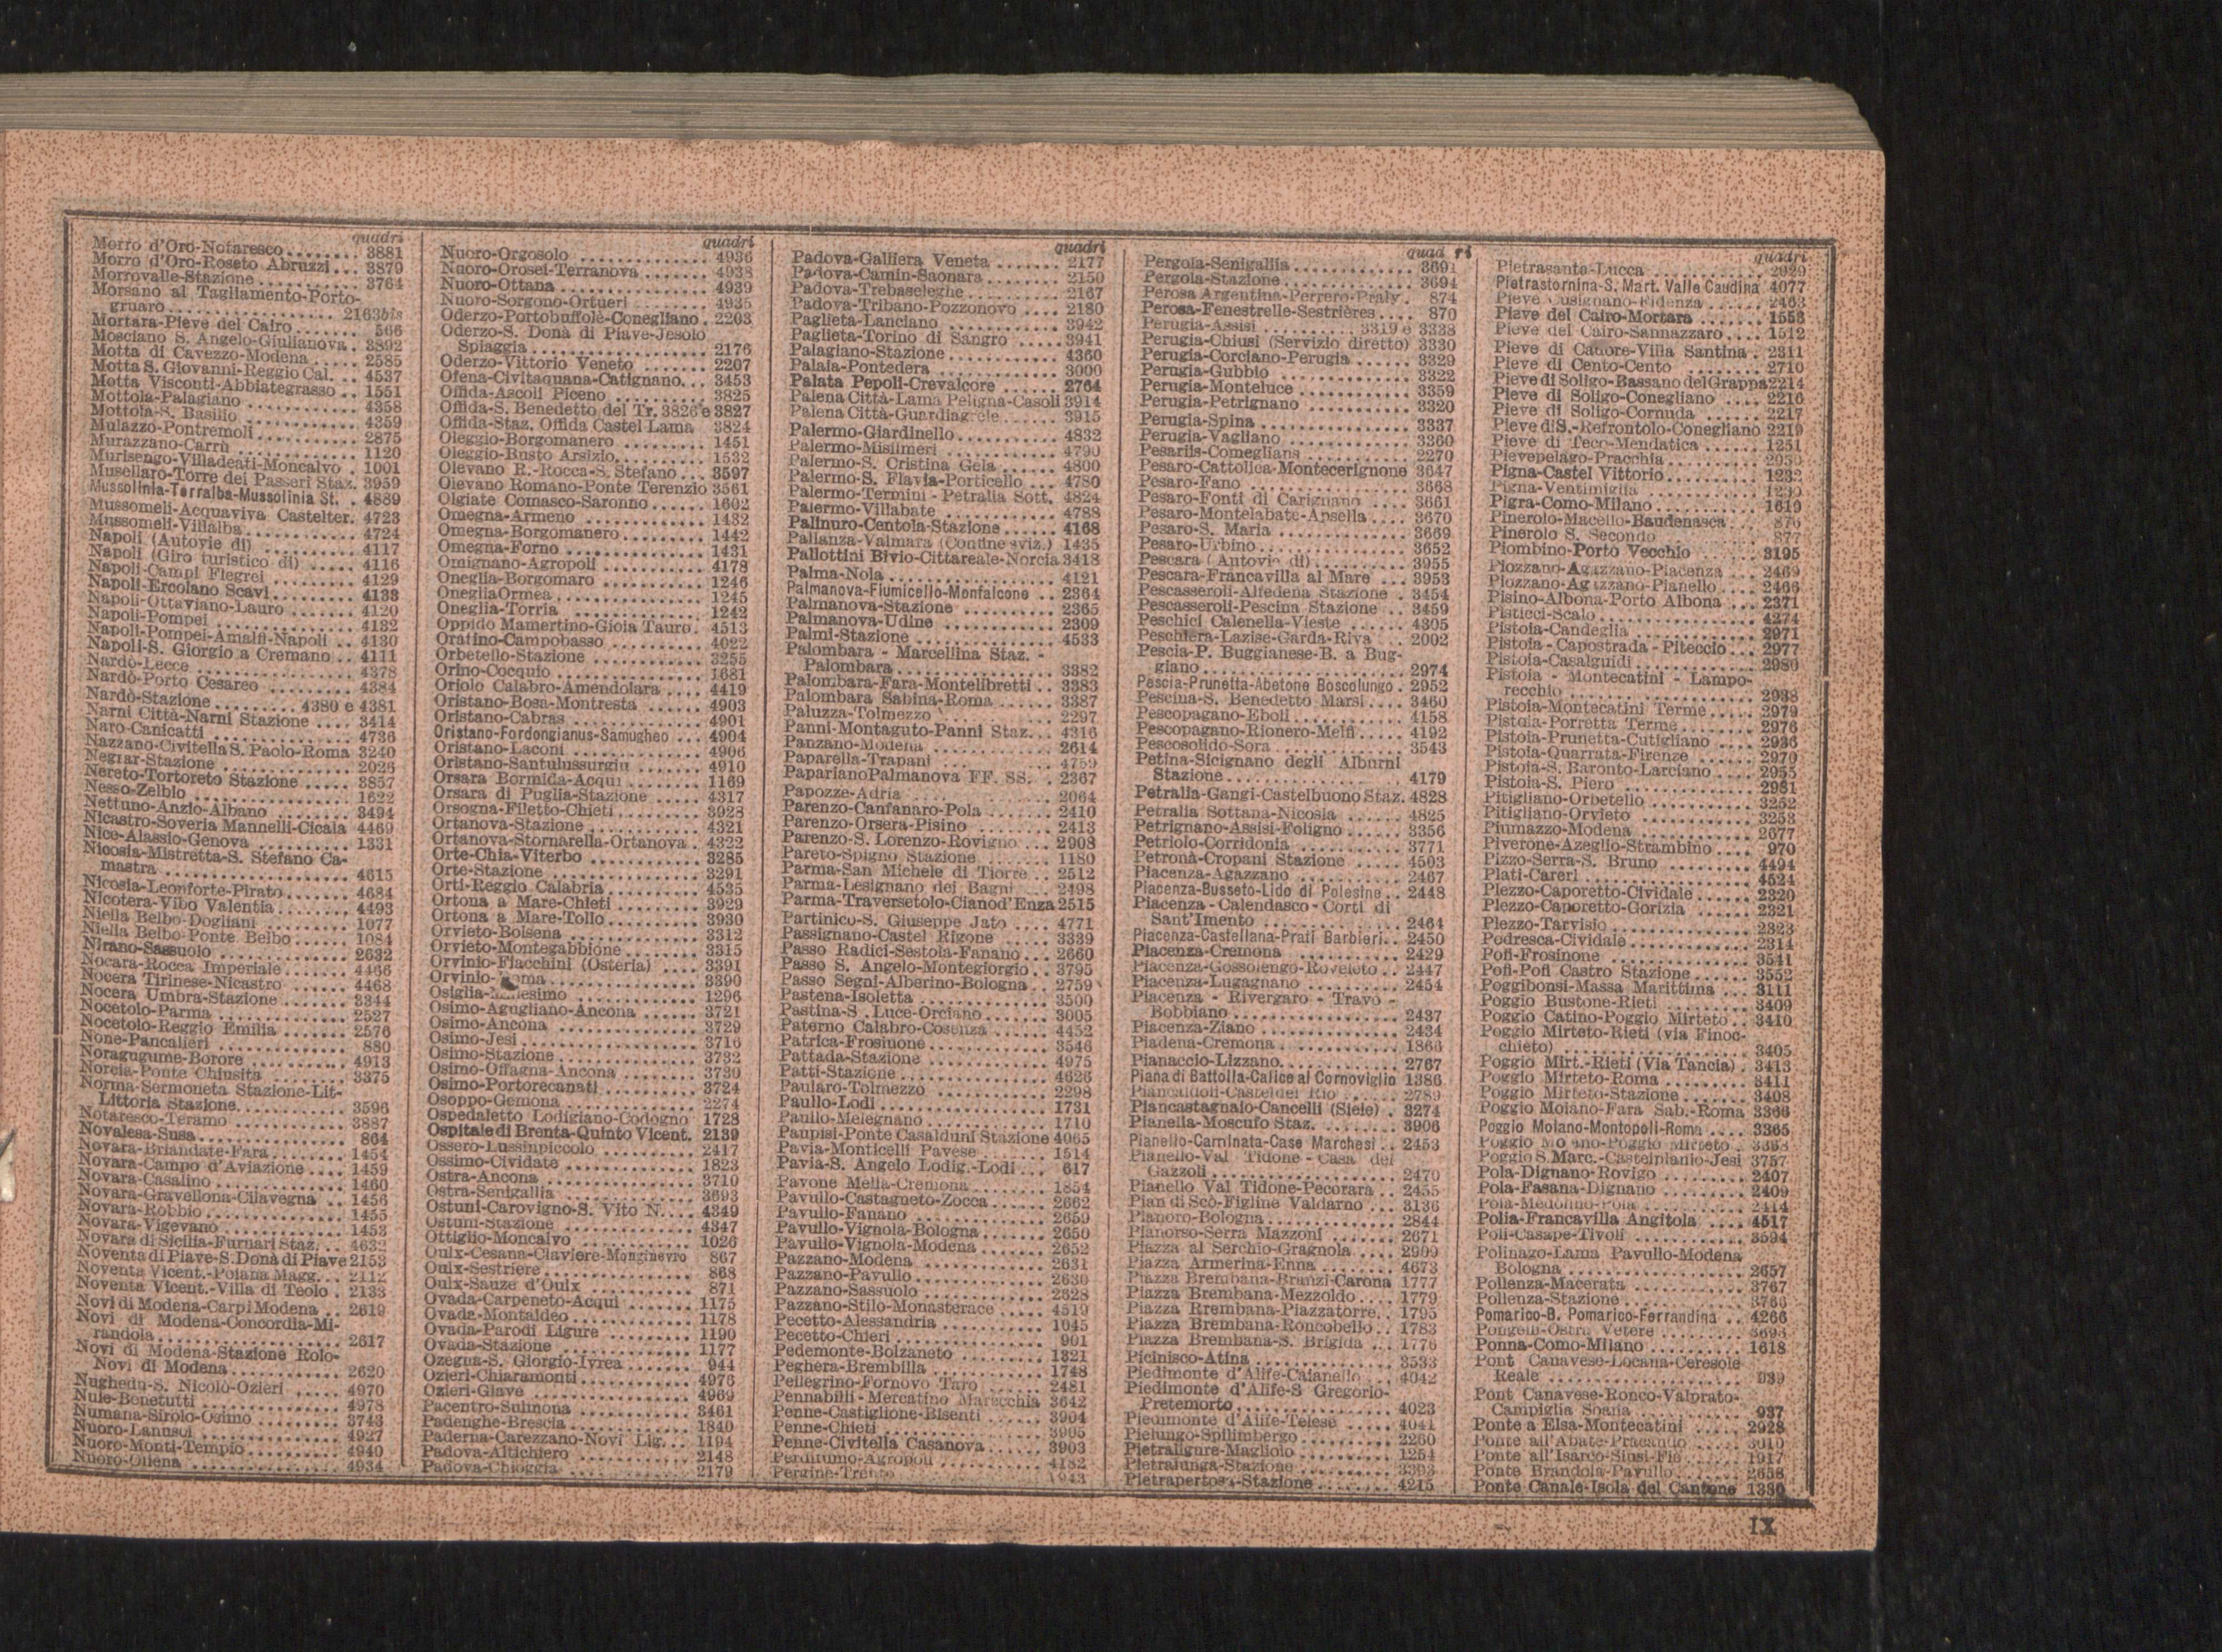 quadri
Morro d'Oro-Notaresco........ 3881
Morro d'Oro-Roseto Abruzzi... 3879
Morrovalle-Stazione........... 3764
Morsano al Tagliamento-Porto-
gruaro.................. 2163bis
Mortara-Pieve del Cairo....... 566
Mosciano S. Angelo-Giulianova. 3892
Motta di Cavezzo-Modena.... 2585
Motta S. Giovanni-Reggio Cal. .. 4537
Motta Visconti-Abbiategrasso .. 1551
Mottola-Palagiano ........... 4358
Mottola-S. Basilio ........... 4359
Mulazzo-Pontremoli........... 2875
Murazzano-Carrù ............ 1120
Murisengo-Villadeati-Moncalvo . 1001
Musellaro-Torre dei Passeri Staz. 3959
Mussolinia-Terralba-Mussolinia St. . 4889
Mussomeli-Acquaviva Castelter. 4723
Mussomeli-Villalba............ 4724
Napoli (Autovie di) .......... 4117
Napoli (Giro turistico di) ..... 4116
Napoli-Campi Flegrei ......... 4129
Napoli-Ercolano Scavi......... 4133
Napoli-Ottaviano-Lauro ...... 4120
Napoli-Pompei .............. 4132
Napoli-Pompei-Amalfi-Napoli .. 4130
Napoli-S. Giorgio a Cremano.. 4111
Nardò-Lecce ................ 4378
Nardò-Porto Cesareo ......... 4384
Nardò-Stazione......... 4380 e 4381
Narni Città-Narni Stazione .... 3414
Naro-Canicatti .............. 4736
Nazzano-Civitella S. Paolo-Roma 3240
Negrar-Stazione ............. 2026
Nereto-Tortoreto Stazione ..... 3857
Nesso-Zelbio ................ 1622
Nettuno-Anzio-Albano ....... 3494
Nicastro-Soveria Mannelli-Cicala 4469
Nice-Alassio-Genova .......... 1331
Nicosia-Mistretta-S. Stefano Ca-
mastra ................... 4615
Nicosia-Leonforte-Pirato....... 4684
Nicotera-Vibo Valentia........ 4493
Niella Belbo-Dogliani ........ 1077
Niella Belbo-Ponte Belbo...... 1084
Nirano-Sassuolo ............. 2632
Nocara-Rocca Imperiale....... 4466
Nocera Tirinese-Nicastro ...... 4468
Nocera Umbra-Stazione ....... 3344
Nocetolo-Parma ............. 2527
Nocetolo-Reggio Emilia ....... 2576
None-Pancalieri ............. 880
Noragugume-Borore .......... 4913
Norcia-Ponte Chiusita ........ 3375
Norma-Sermoneta Stazione-Lit-
Littoria Stazione............ 3596
Notaresco-Teramo ........... 3887
Novalesa-Susa............... 864
Novara-Briandate-Fara........ 1454
Novara-Campo d'Aviazione .... 1459
Novara-Casalino ............. 1460
Novara-Gravellona-Cilavegna .. 1456
Novara-Robbio .............. 1455
Novara-Vigevano ............ 1453
Novara di Sicilia-Furnari Staz... 4632
Noventa di Piave-S. Donà di Piave 2153
Noventa Vicent.-Poiana Magg... 2112
Noventa Vicent.-Villa di Teolo . 2133
Novi di Modena-Carpi Modena .. 2619
Novi di Modena-Concordia-Mi-
randola.................... 2617
Novi di Modena-Stazione Rolo-
Novi di Modena............ 2620
Nughedu-S. Nicolò-Ozieri ..... 4970
Nule-Benetutti .............. 4978
Numana-Sirolo-Osimo ........ 3743
Nuoro-Lanusei .............. 4927
Nuoro-Monti-Tempio ......... 4940
Nuoro-Oliena ............... 4934
quadri
Nuoro-Orgosolo .............. 4936
Nuoro-Orosei-Terranova ....... 4938
Nuoro-Ottana ............... 4939
Nuoro-Sorgono-Ortueri ........ 4935
Oderzo-Portobuffolè-Conegliano . 2203
Oderzo-S. Donà di Piave-Jesolo
Spiaggia.................. 2176
Oderzo-Vittorio Veneto ....... 2207
Ofena-Civitaquana-Catignano... 3453
Offida-Ascoli Piceno .......... 3825
Offida-S. Benedetto del Tr. 3826 e 3827
Offida-Staz. Offida Castel Lama 3824
Oleggio-Borgomanero ......... 1451
Oleggio-Busto Arsizio......... 1532
Olevano R.-Rocca-S. Stefano... 3597
Olevano Romano-Ponte Terenzio 3561
Olgiate Comasco-Saronno ...... 1602
Omegna-Armeno ............. 1432
Omegna-Borgomanero......... 1442
Omegna-Forno .............. 1431
Omignano-Agropoli .......... 4178
Oneglia-Borgomaro .......... 1246
OnegliaOrmea............... 1245
Oneglia-Torria .............. 1242
Oppido Mamertino-Gioia Tauro. 4513
Oratino-Campobasso ......... 4022
Orbetello-Stazione ........... 3255
Orino-Cocquio .............. 1681
Oriolo Calabro-Amendolara .... 4419
Oristano-Bosa-Montresta ...... 4903
Oristano-Cabras ............. 4901
Oristano-Fordongianus-Samugheo ... 4904
Oristano-Laconi ............. 4906
Oristano-Santulussurgiu ....... 4910
Orsara Bormida-Acqui ........ 1169
Orsara di Puglia-Stazione ...... 4317
Orsogna-Filetto-Chieti......... 3928
Ortanova-Stazione ........... 4321
Ortanova-Stornarella-Ortanova . 4322
Orte-Chia-Viterbo ........... 3285
Orte-Stazione ............... 3291
Orti-Reggio Calabria.......... 4535
Ortona a Mare-Chieti ........ 3929
Ortona a Mare-Tollo.......... 3930
Orvieto-Bolsena ............. 3312
Orvieto-Montegabbione........ 3315
Orvinio-Fiacchini (Osteria) .... 3391
Orvinio- oma............... 3390
Osiglia- esimo ............ 1296
Osimo-Agugliano-Ancona ..... 3721
Osimo-Ancona .............. 3729
Osimo-Jesi.................. 3716
Osimo-Stazione .............. 3732
Osimo-Offagna-Ancona ....... 3730
Osimo-Portorecanati .......... 3724
Osoppo-Gemona ............. 2274
Ospedaletto Lodigiano-Codogno 1728
Ospitale di Brenta-Quinto Vicent. 2139
Ossero-Lussinpiccolo .......... 2417
Ossimo-Cividate ............. 1823
Ostra-Ancona ............... 3710
Ostra-Senigallia .............. 3693
Ostuni-Carovigno-S. Vito N.... 4349
Ostuni-Stazione ............. 4347
Ottiglio-Moncalvo ........... 1026
Oulx-Cesana-Claviere-Monginevro 867
Oulx-Sestriere............... 868
Oulx-Sauze d'Oulx ........... 871
Ovada-Carpeneto-Acqui ....... 1175
Ovada-Montaldeo ............ 1178
Ovada-Parodi Ligure ......... 1190
Ovada-Stazione ............. 1177
Ozegna-S. Giorgio-Ivrea ....... 944
Ozieri-Chiaramonti........... 4976
Ozieri-Giave ................ 4969
Pacentro-Sulmona ........... 3461
Padenghe-Brescia ............ 1840
Paderna-Carezzano-Novi Lig... 1194
Padova-Altichiero ............ 2148
Padova-Chioggia ............. 2179
quadri
Padova-Galliera Veneta ....... 2177
Padova-Camin-Saonara ....... 2150
Padova-Trebaseleghe ......... 2167
Padova-Tribano-Pozzonovo .... 2180
Paglieta-Lanciano ............ 3942
Paglieta-Torino di Sangro ..... 3941
Palagiano-Stazione ........... 4360
Palaia-Pontedera ............ 3000
Palata Pepoli-Crevalcore ...... 2764
Palena Città-Lama Peligna-Casoli 3914
Palena Città-Guardiagrele...... 3915
Palermo-Giardinello........... 4832
Palermo-Misilmeri ........... 4790
Palermo-S. Cristina Gela ...... 4800
Palermo-S. Flavia-Porticello ... 4780
Palermo-Termini - Petralia Sott. 4824
Palermo-Villabate ........... 4788
Palinuro-Centola-Stazione ...... 4168
Pallanza-Valmara (Confine sviz.) 1435
Pallottini Bivio-Cittareale-Norcia 3418
Palma-Nola ................. 4121
Palmanova-Fiumicello-Monfalcone .. 2364
Palmanova-Stazione .......... 2365
Palmanova-Udine ............ 2309
Palmi-Stazione .............. 4533
Palombara - Marcellina Staz. -
Palombara................ 3382
Palombara-Fara-Montelibretti .. 3383
Palombara Sabina-Roma ...... 3387
Paluzza-Tolmezzo ............ 2297
Panni-Montaguto-Panni Staz... 4316
Panzano-Modena ............ 2614
Paparella-Trapani ........... 4759
PaparianoPalmanova FF. SS. . 2367
Papozze-Adria .............. 2064
Parenzo-Canfanaro-Pola ....... 2410
Parenzo-Orsera-Pisino ........ 2413
Parenzo-S. Lorenzo-Rovigno ... 2908
Pareto-Spigno Stazione ....... 1180
Parma-San Michele di Tiorre .. 2512
Parma-Lesignano dei Bagni ... 2498
Parma-Traversetolo-Cianod'Enza 2515
Partinico-S. Giuseppe Jato .... 4771
Passignano-Castel Rigone ..... 3339
Passo Radici-Sestola-Fanano... 2660
Passo S. Angelo-Montegiorgio.. 3795
Passo Segni-Alberino-Bologna.. 2759
Pastena-Isoletta ............. 3500
Pastina-S. Luce-Orciano....... 3005
Paterno Calabro-Cosenza ...... 4452
Patrica-Frosinone ............ 3546
Pattada-Stazione ............ 4975
Patti-Stazione .............. 4626
Paularo-Tolmezzo ........... 2298
Paullo-Lodi ................. 1731
Paullo-Melegnano ........... 1710
Paupisi-Ponte Casalduni Stazione 4065
Pavia-Monticelli Pavese ....... 1514
Pavia-S. Angelo Lodig.-Lodi ... 617
Pavone Mella-Cremona ....... 1854
Pavullo-Castagneto-Zocca...... 2662
Pavullo-Fanano ............. 2659
Pavullo-Vignola-Bologna....... 2650
Pavullo-Vignola-Modena ...... 2652
Pazzano-Modena ............ 2631
Pazzano-Pavullo ............. 2630
Pazzano-Sassuolo ............ 2628
Pazzano-Stilo-Monasterace .... 4519
Pecetto-Alessandria .......... 1045
Pecetto-Chieri .............. 901
Pedemonte-Bolzaneto ........ 1321
Peghera-Brembilla ........... 1748
Pellegrino-Fornovo Taro ...... 2481
Pennabilli - Mercatino Marecchia 3642
Penne-Castiglione-Bisenti ..... 3904
Penne-Chieti ................ 3905
Penne-Civitella Casanova ...... 3903
Perdifumo-Agropoli .......... 4182
Pergine-Trento 1943
quad ri
Pergola-Senigallia ............ 3691
Pergola-Stazione ............. 3694
Perosa Argentina-Perrero-Praly. 874
Perosa-Fenestrelle-Sestrières.... 870
Perugia-Assisi .......... 3319 e 3338
Perugia-Chiusi (Servizio diretto) 3330
Perugia-Corciano-Perugia ...... 3329
Perugia-Gubbio .............. 3322
Perugia-Monteluce ........... 3359
Perugia-Petrignano ........... 3320
Perugia-Spina ............... 3337
Perugia-Vagliano ............ 3360
Pesariis-Comeglians .......... 2270
Pesaro-Cattolica-Montecerignone 3647
Pesaro-Fano ................ 3668
Pesaro-Fonti di Carignano .... 3661
Pesaro-Montelabate-Apsella.... 3670
Pesaro-S. Maria ............. 3669
Pesaro-Urbino............... 3652
Pescara (Autovie di).......... 3955
Pescara-Francavilla al Mare ... 3953
Pescasseroli-Alfedena Stazione . 3454
Pescasseroli-Pescina Stazione .. 3459
Peschici Calenella-Vieste ...... 4305
Peschiera-Lazise-Garda-Riva .. 2002
Pescia-P. Buggianese-B. a Bug-
giano.................... 2974
Pescia-Prunetta-Abetone Boscolungo . 2952
Pescina-S. Benedetto Marsi.... 3460
Pescopagano-Eboli ........... 4158
Pescopagano-Rionero-Melfi..... 4192
Pescosolido-Sora ............. 3543
Petina-Sicignano degli Alburni
Stazione.................. 4179
Petralia-Gangi-Castelbuono Staz. 4828
Petralia Sottana-Nicosia ...... 4825
Petrignano-Assisi-Foligno ...... 3356
Petriolo-Corridonia........... 3771
Petronà-Cropani Stazione ..... 4503
Piacenza-Agazzano ........... 2467
Piacenza-Busseto-Lido di Polesine.. 2448
Piacenza - Calendasco - Corti di
Sant'Imento .............. 2464
Piacenza-Castellana-Prati Barbieri.. 2450
Piacenza-Cremona ........... 2429
Piacenza-Gossolengo-Roveleto .. 2447
Piacenza-Lugagnano ......... 2454
Piacenza - Rivergaro - Travo -
Bobbiano ................. 2437
Piacenza-Ziano .............. 2434
Piadena-Cremona............ 1866
Pianaccio-Lizzano............ 2767
Piana di Battolla-Calice al Cornoviglio 1386
Piancaldoli-Castel del Rio ..... 2789
Piancastagnaio-Cancelli (Siele) . 3274
Pianella-Moscufo Staz. ........ 3906
Pianello-Caminata-Case Marchesi.. 2453
Pianello-Val Tidone - Casa dei
Gazzoli ................... 2470
Pianello Val Tidone-Pecorara .. 2455
Pian di Scò-Figline Valdarno ... 3136
Pianoro-Bologna............. 2844
Pianorso-Serra Mazzoni ....... 2671
Piazza al Serchio-Gragnola..... 2909
Piazza Armerina-Enna ........ 4673
Piazza Brembana-Branzi-Carona 1777
Piazza Brembana-Mezzoldo.... 1779
Piazza Brembana-Piazzatorre.. 1795
Piazza Brembana-Roncobello.. 1783
Piazza Brembana-S. Brigida ... 1776
Picinisco-Atina .............. 3533
Piedimonte d'Alife-Caianello ... 4042
Piedimonte d'Alife-S Gregorio-
Pretemorto................ 4023
Piedimonte d'Alife-Telese ..... 4041
Pielungo-Spilimbergo ......... 2260
Pietraligure-Magliolo ......... 1254
Pietralunga-Stazione.......... 3393
Pietrapertosa-Stazione ........ 4215
quadri
Pietrasanta-Lucca ............ 2929
Pietrastornina-S. Mart. Valle Caudina 4077
Pieve Cusignano-Fidenza ...... 2463
Pieve del Cairo-Mortara ....... 1556
Pieve del Cairo-Sannazzaro.... 1512
Pieve di Cadore-Villa Santina . 2311
Pieve di Cento-Cento ......... 2710
Pieve di Soligo-Bassano del Grappa 2214
Pieve di Soligo-Conegliano .... 2216
Pieve di Soligo-Cornuda ...... 2217
Pieve di S.-Refrontolo-Conegliano 2219
Pieve di Teco-Mendatica ...... 1251
Pievepelago-Pracchia .......... 2950
Pigna-Castel Vittorio.......... 1232
Pigna-Ventimiglia ............ 1230
Pigra-Como-Milano........... 1619
Pinerolo-Macello-Baudenasca .. 876
Pinerolo S. Secondo .......... 877
Piombino-Porto Vecchio ...... 3195
Piozzano-Agazzano-Piacenza ... 2469
Piozzano-Agazzano-Pianello.... 2466
Pisino-Albona-Porto Albona ... 2371
Pisticci-Scalo ................ 4274
Pistoia-Candeglia ............ 2971
Pistoia - Capostrada - Piteccio... 2977
Pistoia-Casalguidi............ 2980
Pistoia - Montecatini - Lampo-
recchio .................. 2938
Pistoia-Montecatini Terme..... 2979
Pistoia-Porretta Terme........ 2976
Pistoia-Prunetta-Cutigliano .... 2936
Pistoia-Quarrata-Firenze ...... 2970
Pistoia-S. Baronto-Larciano .... 2955
Pistoia-S. Piero .............. 2981
Pitigliano-Orbetello .......... 3252
Pitigliano-Orvieto ............ 3253
Piumazzo-Modena ........... 2677
Piverone-Azeglio-Strambino .... 970
Pizzo-Serra-S. Bruno ......... 4494
Platì-Careri ................. 4524
Plezzo-Caporetto-Cividale...... 2320
Plezzo-Caporetto-Gorizia ...... 2321
Plezzo-Tarvisio .............. 2323
Podresca-Cividale ............ 2314
Pofi-Frosinone .............. 3541
Pofi-Pofi Castro Stazione...... 3552
Poggibonsi-Massa Marittima ... 3111
Poggio Bustone-Rieti ......... 3409
Poggio Catino-Poggio Mirteto.. 3410
Poggio Mirteto-Rieti (via Finoc-
chieto) .................. 3405
Poggio Mirt.-Rieti (Via Tancia). 3413
Poggio Mirteto-Roma ......... 3411
Poggio Mirteto-Stazione....... 3408
Poggio Moiano-Fara Sab.-Roma 3366
Poggio Moiano-Montopoli-Roma .... 3365
Poggio Mo ano-Poggio Mirteto . 3368
Poggio S. Marc.-Castelplanio-Jesi 3757
Pola-Dignano-Rovigo ......... 2407
Pola-Fasana-Dignano ......... 2409
Pola-Medolino-Pola ........... 2414
Polia-Francavilla Angitola .... 4517
Poli-Casape-Tivoli ........... 3594
Polinago-Lama Pavullo-Modena
Bologna.................. 2657
Pollenza-Macerata ........... 3767
Pollenza-Stazione ............ 3766
Pomarico-B. Pomarico-Ferrandina .. 4266
Pongelli-Ostra Vetere ......... 3695
Ponna-Como-Milano.......... 1618
Pont Canavese-Locana-Ceresole
Reale .................... 939
Pont Canavese-Ronco-Valprato-
Campiglia Soana ........... 937
Ponte a Elsa-Montecatini ..... 2928
Ponte all'Abate-Pracando ..... 3010
Ponte all'Isarco-Siusi-Fiè ...... 1917
Ponte Brandola-Pavullo........ 2658
Ponte Canale-Isola del Cantone 1330
IX